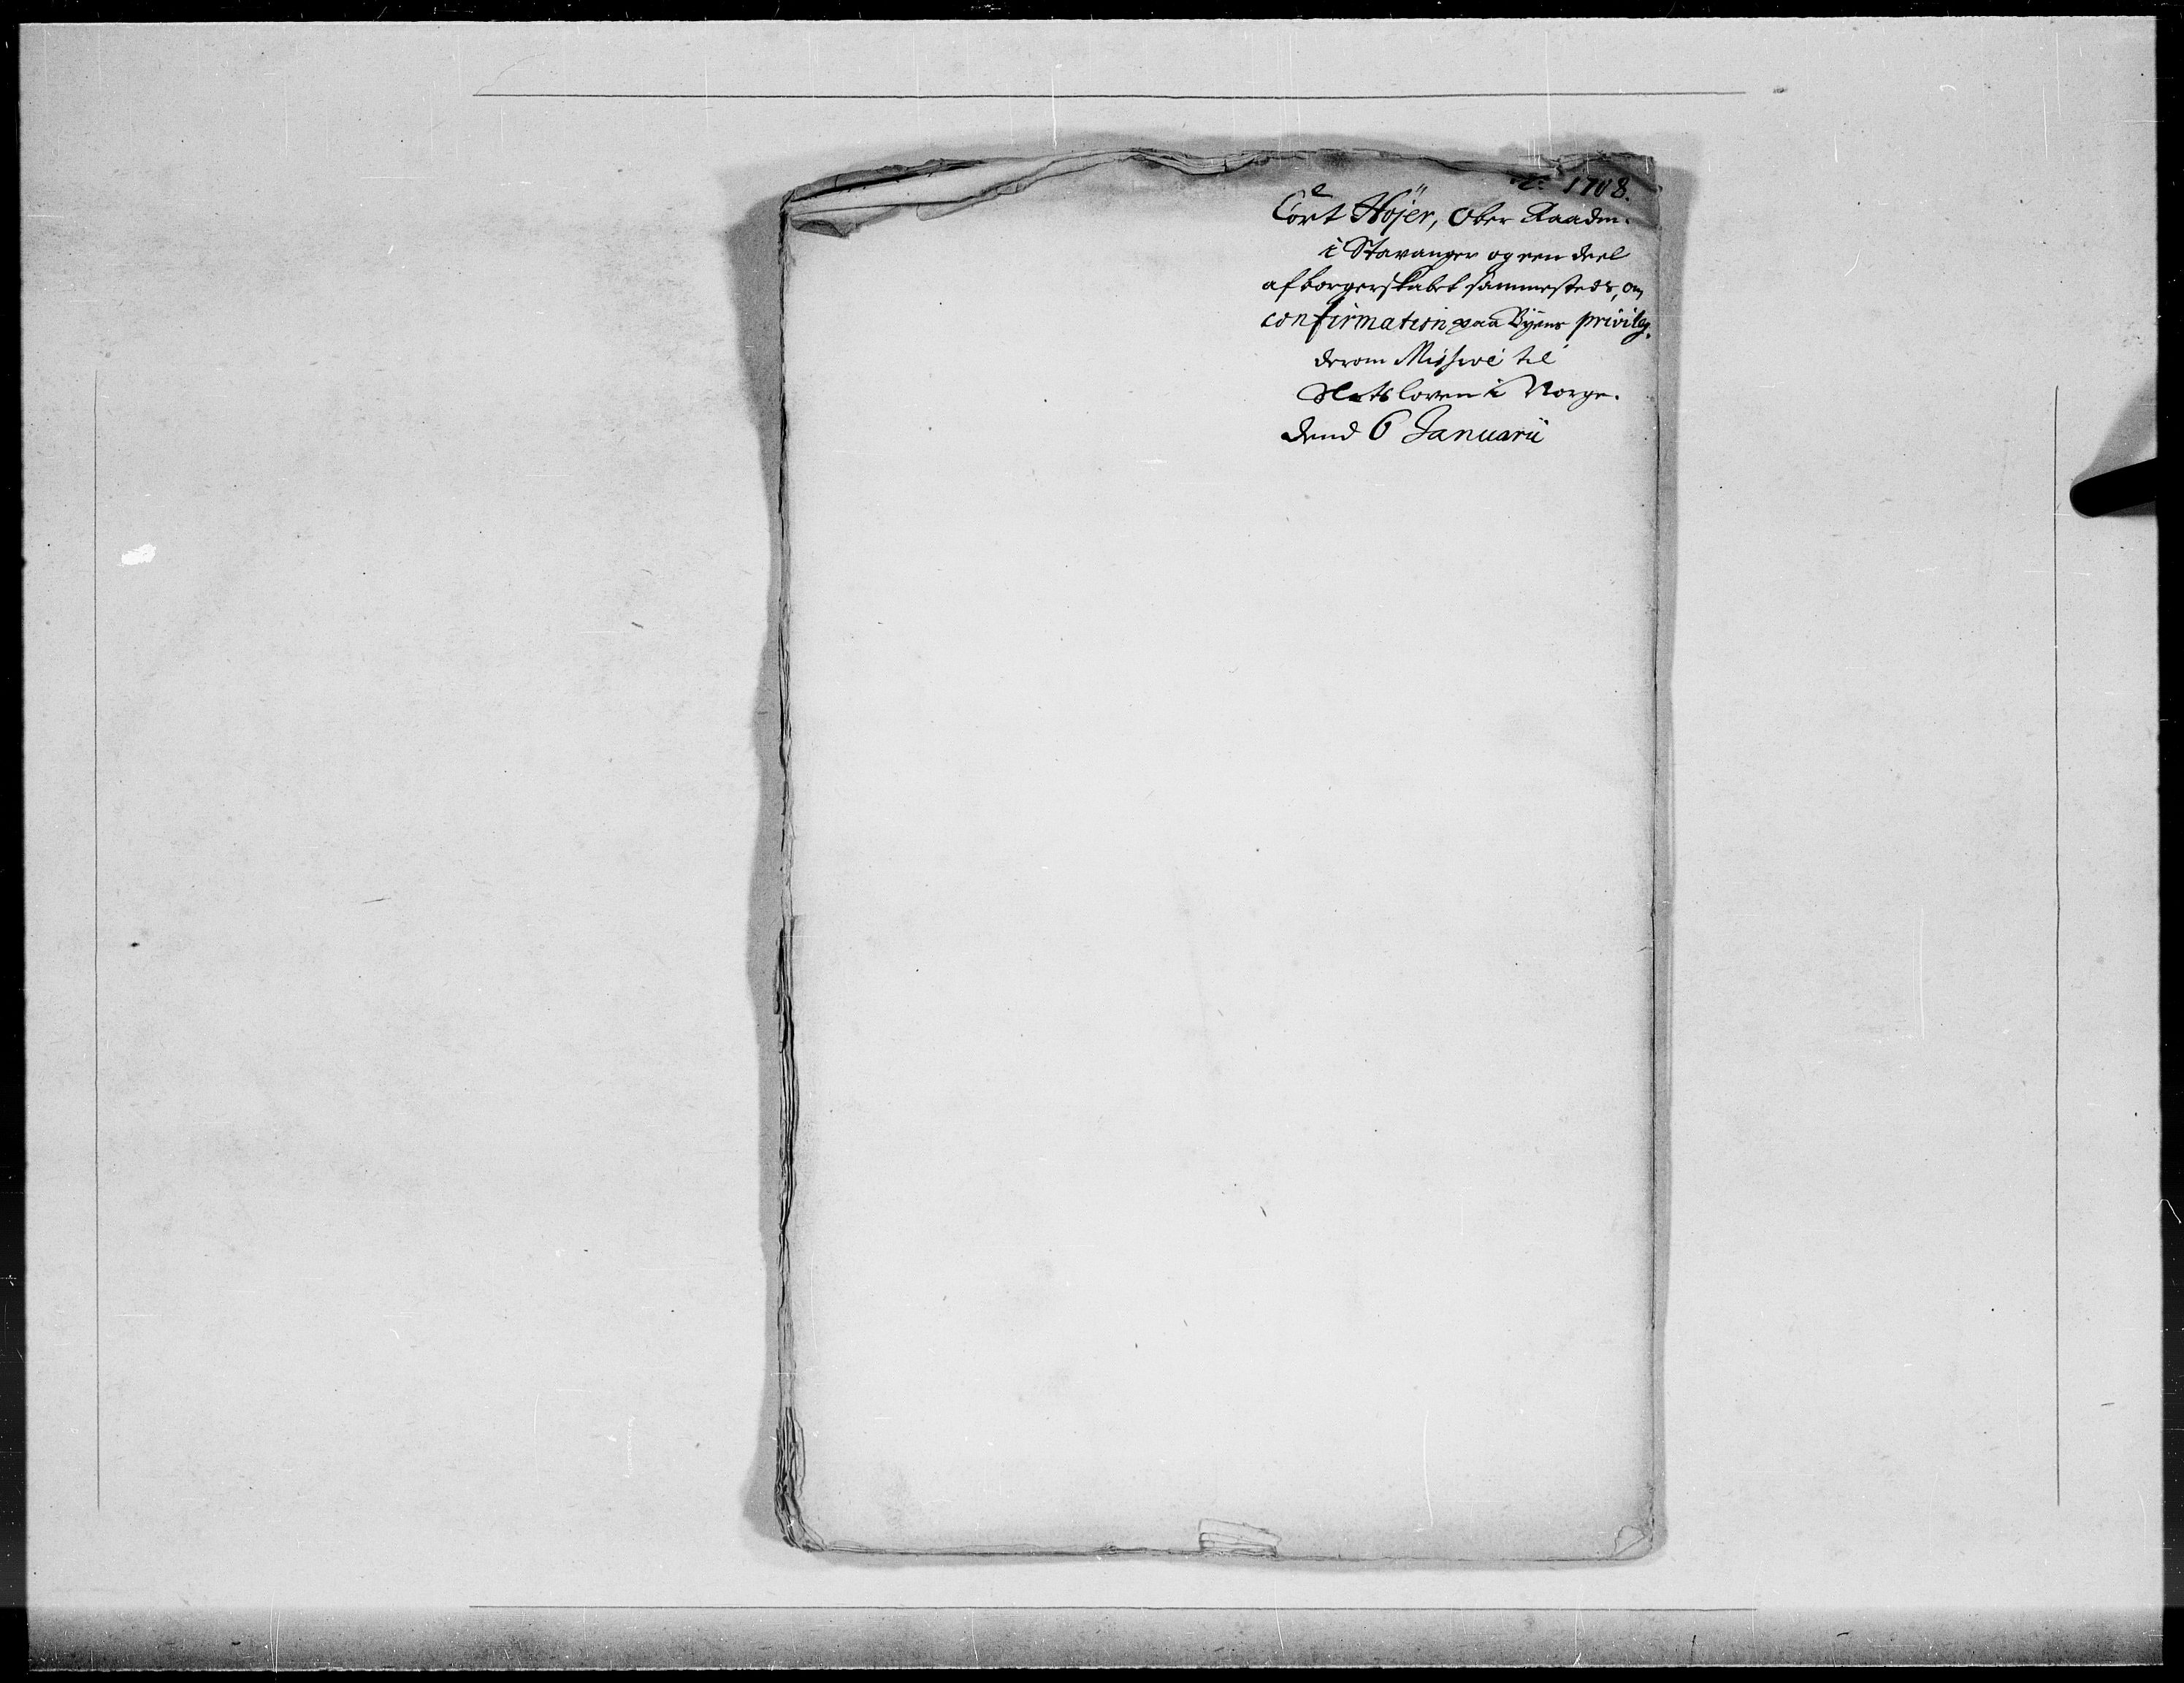 Ao: 1708.
Cort Höjer, Ober Raadm.
i Stavanger og een deel
af borgerskabet sammesteds, om
confirmation paa Byens privileg.
derom Missive til
Slots loven i Norge.
dend 6 Januarii